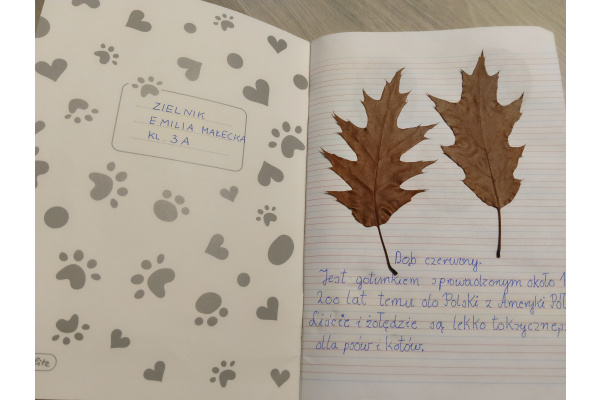 ZIELNIK
EMILIA MAŁECKA
KL 3A
Dąb czerwony.
Jest gatunkiem sprowadzonym około
200 lat temu do Polski z Ameryki Pół
Liście i żołędzie są lekko toksyczne
dla psów i kotów.